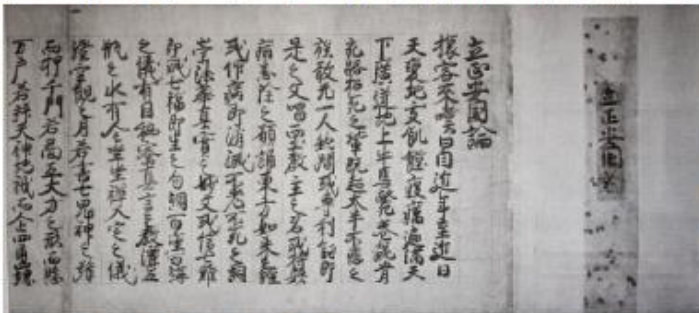 立正安国論
立正安国論
旅客来嘆曰自近年至近日
天変地夭飢饉疫癘遍満天
下広迸地上牛馬斃巷骸骨
充路招死之輩既超大半不悲之
族敢无一人然間或専利剣即
是之文唱西土教主之名或恃衆
病悉除之願誦東方如来之経
或仰病即消滅不老不死之詞
崇法華真実之妙文或信七難
即滅七福即生之句調百座百講
之儀有因秘密真言之教灑五
瓶之水有全坐禅入定之儀
澄空観之月若書七鬼神之号
而押千門若図五大力之形而懸
万戸若拝天神地祇而企四角